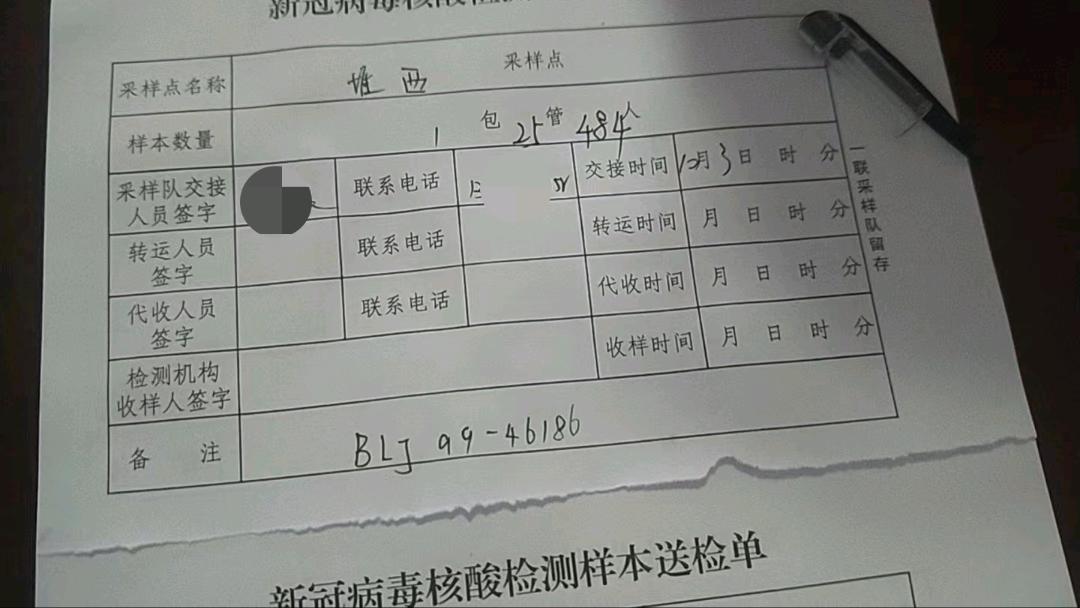 新冠病毒核酸检测
采样点名称 堆西 采样点
样本数量 1 包 25 管 484 人
采样队交接人员签字 联系电话 交接时间 12月3日 时 分
转运人员签字 联系电话 转运时间 月 日 时 分
代收人员签字 联系电话 代收时间 月 日 时 分
检测机构收样人签字 收样时间 月 日 时 分
备 注 BLJ 99-46186
一联采样队留存
新冠病毒核酸检测样本送检单